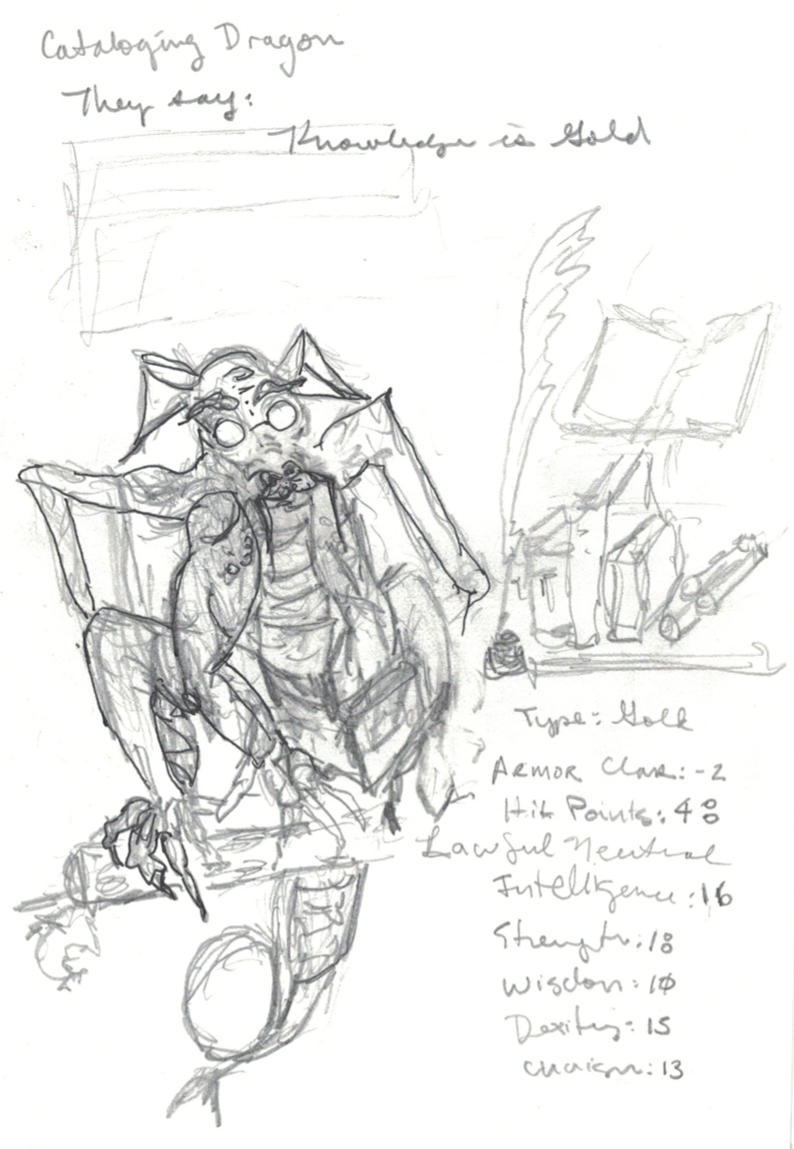 Cataloging Dragon
They say:
Knowledge is Gold
Type: Gold
Armor Class: -2
Hit Points: 48
Lawful Neutral
Intelligence: 16
Strength: 18
Wisdom: 10
Dexity: 15
Charism: 13